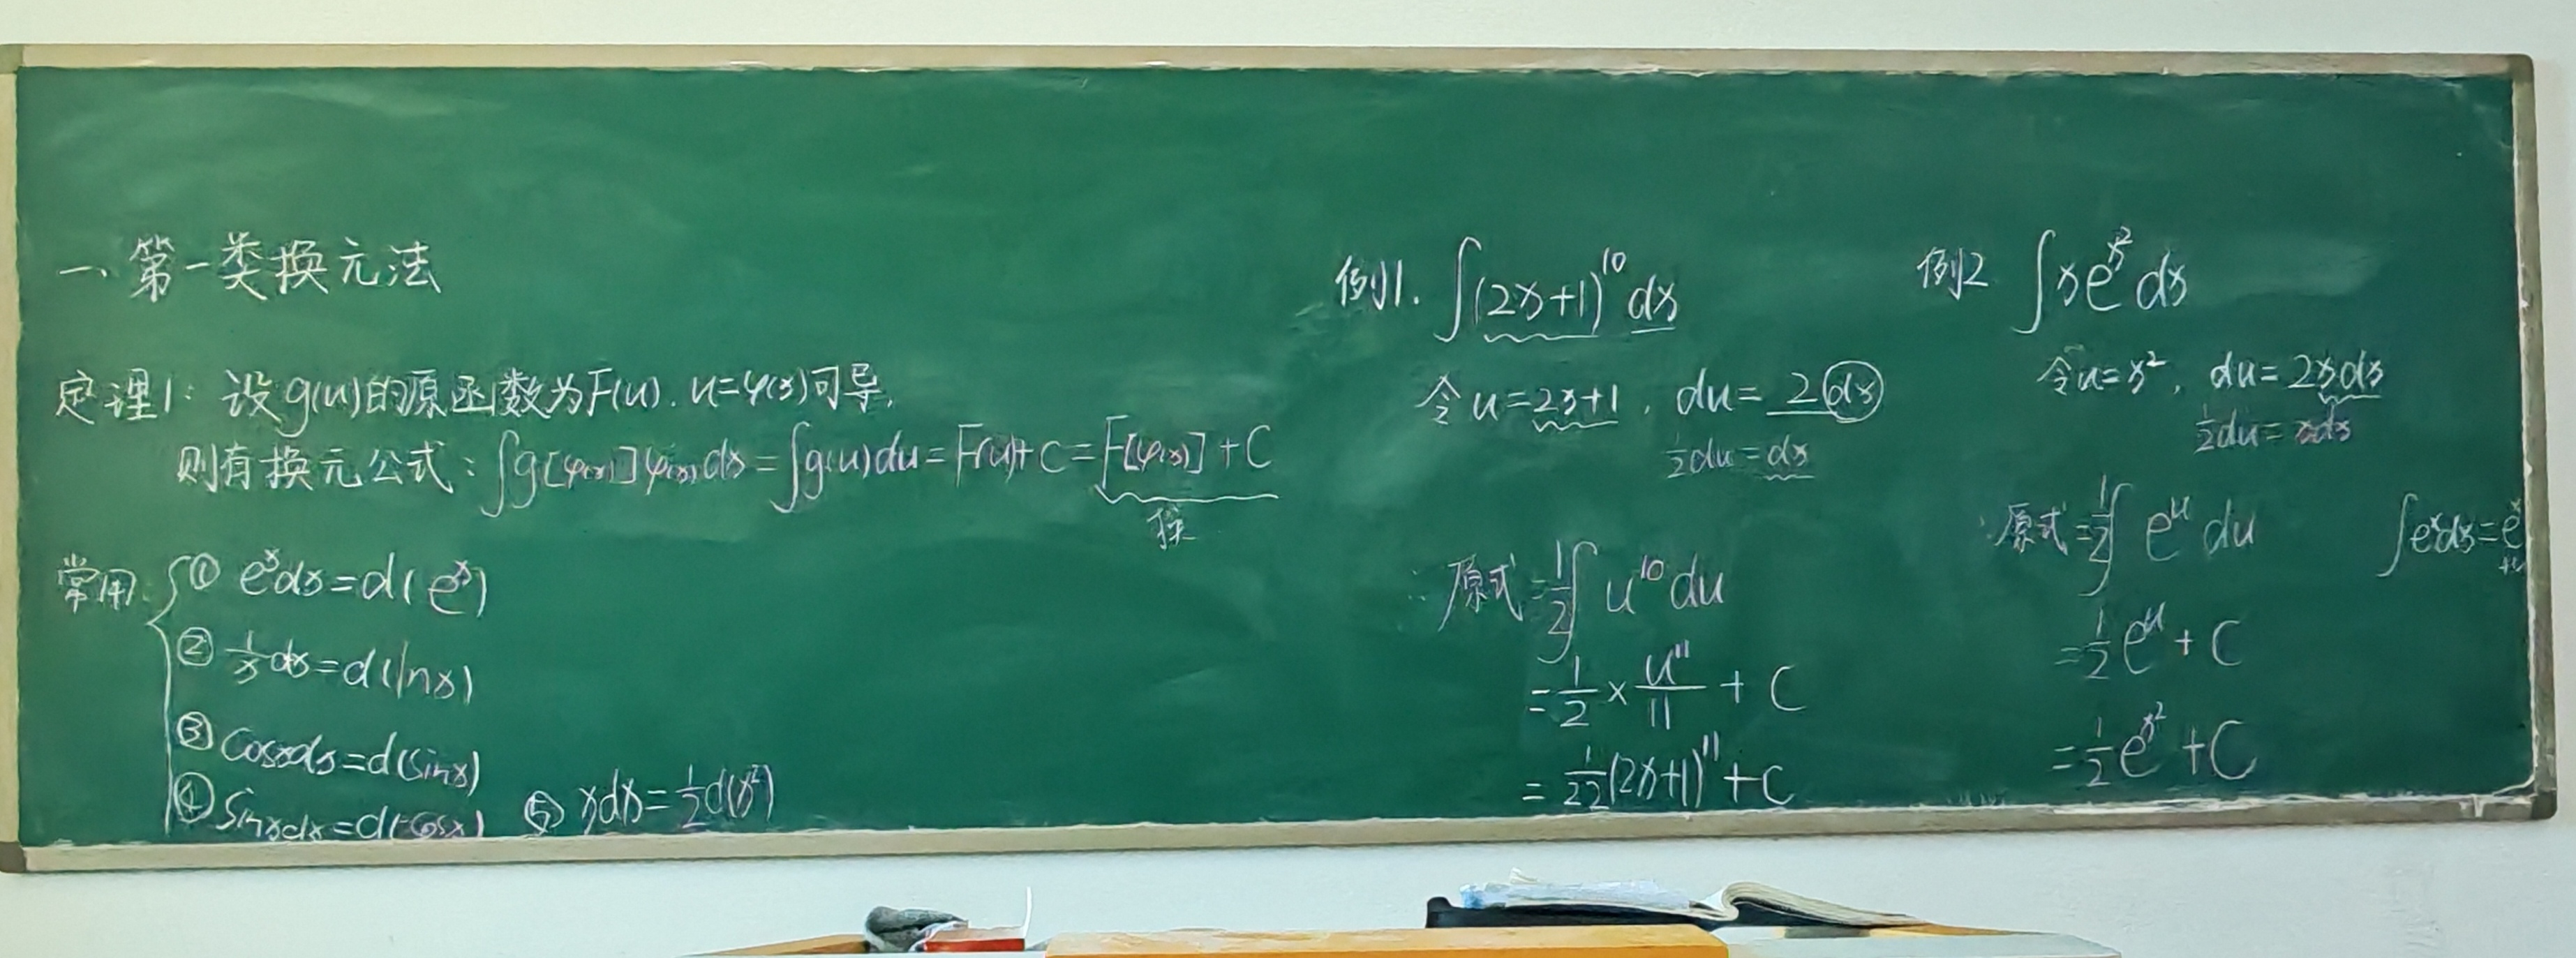 一、第一类换元法
定理1：设g(u)的原函数为F(u). u=φ(x)可导.
则有换元公式：∫g[φ(x)]φ(x)dx=∫g(u)du=F(u)+C=F[φ(x)]+C
常用：
① eˣdx=d(eˣ)
② 1/x dx=d(lnx)
③ cosxdx=d(sinx)
④ sinxdx=d(-cosx)
⑤ xdx=1/2 d(x²)
例1. ∫(2x+1)¹⁰dx
令u=2x+1, du=2dx
1/2 du=dx
∴原式=1/2∫u¹⁰du
=1/2×u¹¹/11+C
=1/22(2x+1)¹¹+C
例2 ∫xe^x² dx
令u=x², du=2xdx
1/2 du=xdx
∴原式=1/2∫eᵘdu
=1/2 eᵘ+C
=1/2 e^x²+C
∫eˣdx=eˣ
+c